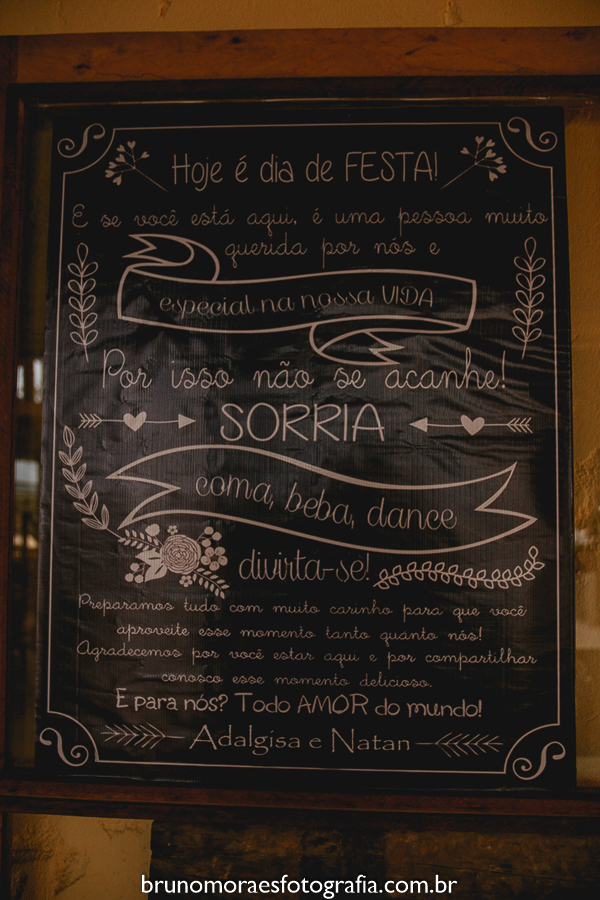 Hoje é dia de FESTA!
E se você está aqui, é uma pessoa muito
querida por nós e
especial na nossa VIDA
Por isso não se acanhe!
SORRIA
coma, beba, dance
divirta-se!
Preparamos tudo com muito carinho para que você
aproveite esse momento tanto quanto nós!
Agradecemos por você estar aqui e por compartilhar
conosco esse momento delicioso.
E para nós? Todo AMOR do mundo!
Adalgisa e Natan
brunomoraesfotografia.com.br